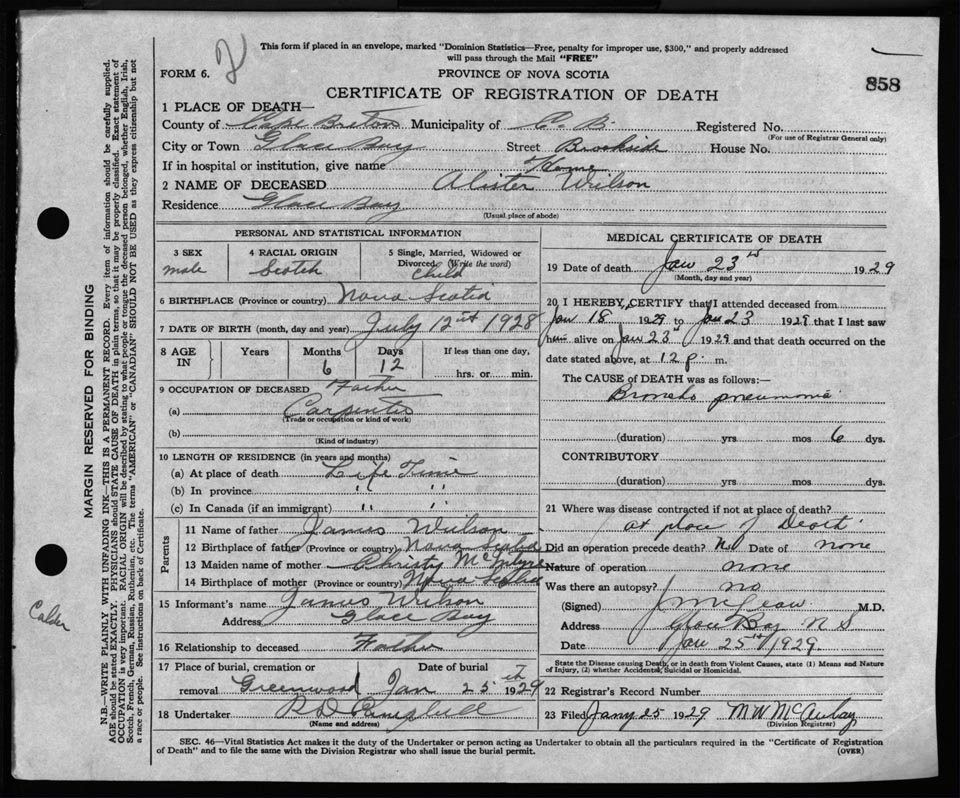 This form if placed in an envelope, marked "Dominion Statistics—Free, penalty for improper use, $300," and properly addressed
will pass through the Mail "FREE"
FORM 6.
PROVINCE OF NOVA SCOTIA
858
CERTIFICATE OF REGISTRATION OF DEATH
1 PLACE OF DEATH—
County of Cape Breton Municipality of C. B. Registered No.
(For use of Registrar General only)
City or Town Glace Bay Street Brookside House No.
If in hospital or institution, give name Home
2 NAME OF DECEASED Alister Wilson
Residence Glace Bay
(Usual place of abode)
PERSONAL AND STATISTICAL INFORMATION
3 SEX
male
4 RACIAL ORIGIN
Scotch
5 Single, Married, Widowed or
Divorced (Write the word)
Child
6 BIRTHPLACE (Province or country) Nova Scotia
7 DATE OF BIRTH (month, day and year) July 12 1928
8 AGE IN
Years
Months
6
Days
12
If less than one day,
hrs. or min.
9 OCCUPATION OF DECEASED Father
(a) Carpenter
(Trade or occupation or kind of work)
(b)
(Kind of industry)
10 LENGTH OF RESIDENCE (in years and months)
(a) At place of death Life Time
(b) In province " "
(c) In Canada (if an immigrant) " "
Parents
11 Name of father James Wilson
12 Birthplace of father (Province or country) Nova Scotia
13 Maiden name of mother Christy McIntyre
14 Birthplace of mother (Province or country) Nova Scotia
15 Informant's name James Wilson
Address Glace Bay
16 Relationship to deceased Father
17 Place of burial, cremation or
removal Greenwood
Date of burial
Jan 25th 1929
18 Undertaker
(Name and address)
MEDICAL CERTIFICATE OF DEATH
19 Date of death Jan 23 1929
(Month, day and year)
20 I HEREBY CERTIFY that I attended deceased from
Jan 18 1929 to Jan 23 1929 that I last saw
him alive on Jan 23 1929 and that death occurred on the
date stated above, at 12 p. m.
The CAUSE of DEATH was as follows:—
Broncho pneumonia
(duration) yrs. mos 6 dys.
CONTRIBUTORY
(duration) yrs. mos. dys.
21 Where was disease contracted if not at place of death?
at place of Death
Did an operation precede death? No Date of none
Nature of operation none
Was there an autopsy? no
(Signed) M.D.
Address Glace Bay N S
Date Jan 25th 1929
State the Disease causing Death, or in death from Violent Causes, state (1) Means and Nature
of Injury, (2) whether Accidental, Suicidal or Homicidal.
22 Registrar's Record Number
23 Filed Jany 25 1929
(Division Registrar)
SEC. 46—Vital Statistics Act makes it the duty of the Undertaker or person acting as Undertaker to obtain all the particulars required in the "Certificate of Registration
of Death" and to file the same with the Division Registrar who shall issue the burial permit.
(OVER)
MARGIN RESERVED FOR BINDING
N.B.—WRITE PLAINLY WITH UNFADING INK—THIS IS A PERMANENT RECORD. Every item of information should be carefully supplied.
AGE should be stated EXACTLY. PHYSICIANS should STATE CAUSE OF DEATH in plain terms, so that it may be properly classified. Exact statement of
OCCUPATION is very important. RACIAL ORIGIN will be described by stating to what people or tongue the deceased person belonged, whether English, Irish,
Scotch, French, German, Russian, Ruthenian, etc. The terms "AMERICAN" or "CANADIAN" SHOULD NOT BE USED as they express citizenship but not
a race or people. See instructions on back of Certificate.
Calder